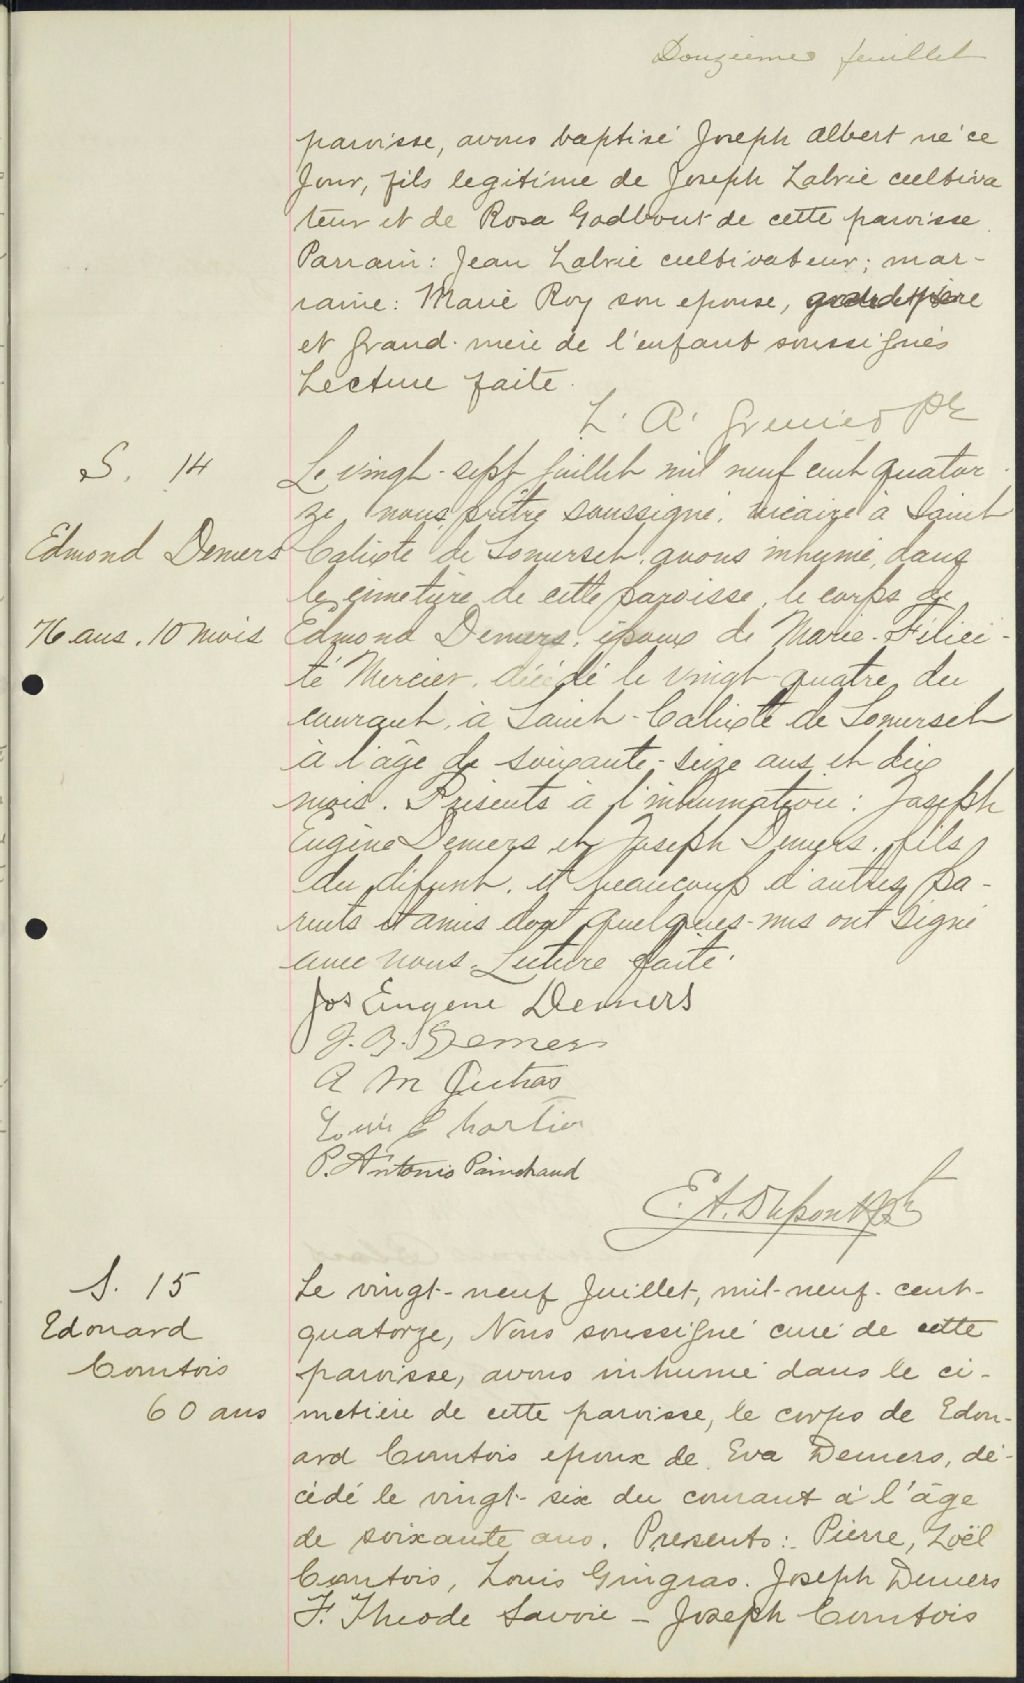 Douzieme feuillet
paroisse, avons baptisé Joseph Albert né ce
Jour, fils legitime de Joseph Labrie cultiva
teur et de Rosa Godbout de cette paroisse.
Parrain: Jean Labrie cultivateur; mar-
raine: Marie Roy son epouse,
et Grand-mère de l'enfant soussignés
Lecture faite.
L. A. Grenier Ptre
S. 14
Edmond Demers
76 ans. 10 mois
Le vingt-sept Juillet mil neuf cent quator-
ze nous, prêtre soussigné, vicaire à Saint
Calixte de Somerset, avons inhumé, dans
le cimetière de cette paroisse, le corps de
Edmond Demers, époux de Marie-Félici-
té Mercier, décédé le vingt-quatre du
courant, à Saint-Calixte de Somerset
à l'âge de soixante-seize ans et dix
mois. Présents à l'inhumation: Joseph
Eugène Demers et Joseph Demers, fils
du défunt, et beaucoup d'autres pa-
rents et amis dont quelques-uns ont signé
avec nous. Lecture faite.
Jos Eugene Demers
J. B. Demers
A M Jutras
Louis Chartier
P. Antonio Painchaud
E. A. Dupont Ptre
S. 15
Edouard
Comtois
60 ans
Le vingt-neuf Juillet, mil-neuf-cent-
quatorze, Nous soussigné curé de cette
paroisse, avons inhumé dans le ci-
metière de cette paroisse, le corps de Edou-
ard Comtois epoux de Eva Demers, dé-
cédé le vingt-six du courant à l'âge
de soixante ans. Presents: Pierre, Zoël
Comtois, Louis Gingras. Joseph Demers
F. Theode Savoie - Joseph Comtois